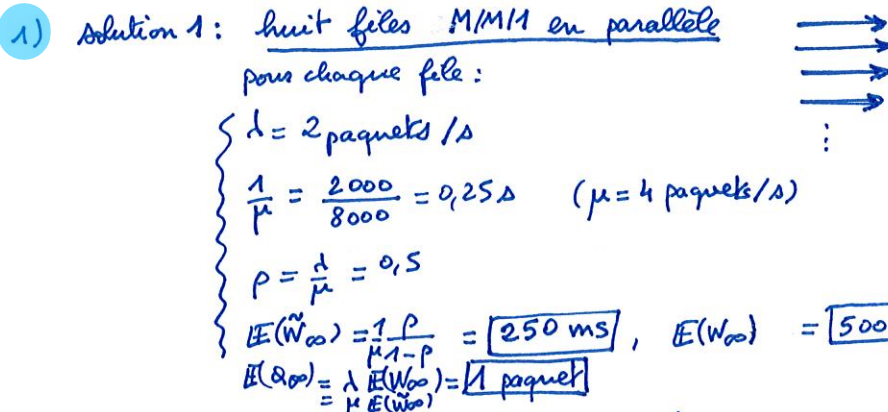 1) solution 1 : huit files M/M/1 en parallèle
pour chaque file :
λ = 2 paquets /s
1/μ = 2000/8000 = 0,25 s (μ = 4 paquets/s)
ρ = λ/μ = 0,5
E(W̃∞) = 1/μ ρ/1-ρ = 250 ms , E(W∞) = 500
E(Q∞) = λ E(W∞) = 1 paquet
= μ E(W̃∞)